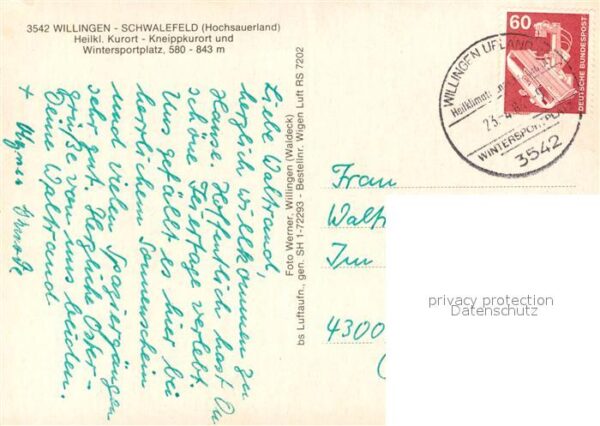 3542 WILLINGEN - SCHWALEFELD (Hochsauerland)
Heilkl. Kurort - Kneippkurort und
Wintersportplatz, 580 - 843 m
Liebe Waltraud,
herzlich willkommen zu
Hause. Hoffentlich hast Du
schöne Feiertage verlebt.
Uns gefällt es hier bei
herrlichem Sonnenschein
und vielen Spaziergängen
sehr gut. Herzliche Oster-
grüße von uns beiden.
Deine Waltraud
+
Foto Werner, Willingen (Waldeck)
bs Luftaufn., gen. SH 1-72293 - Bestellnr. Wigen Luft RS 7202
60
DEUTSCHE BUNDESPOST
WILLINGEN UPLAND
23.-4.
WINTERSPORTPLATZ
3542
Frau
Walt
Im
4300
privacy protection
Datenschutz